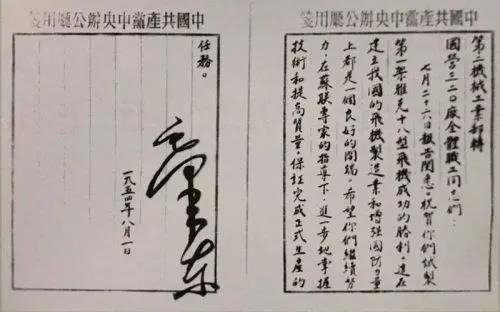 中國共產黨中央辦公廳用箋
第二機械工業部轉
國營三二〇廠全體職工同志們:
七月二十六日報告閱悉。祝賀你們試製
第一架雅克十八型飛機成功的勝利。這在
建立我國的飛機製造業和增强國防力量
上都是一個良好的開端。希望你們繼續努
力,在蘇聯專家的指導下,進一步地掌握
技術和提高質量,保証完成正式生產的
中國共產黨中央辦公廳用箋
任務。
毛澤東
一九五四年八月一日